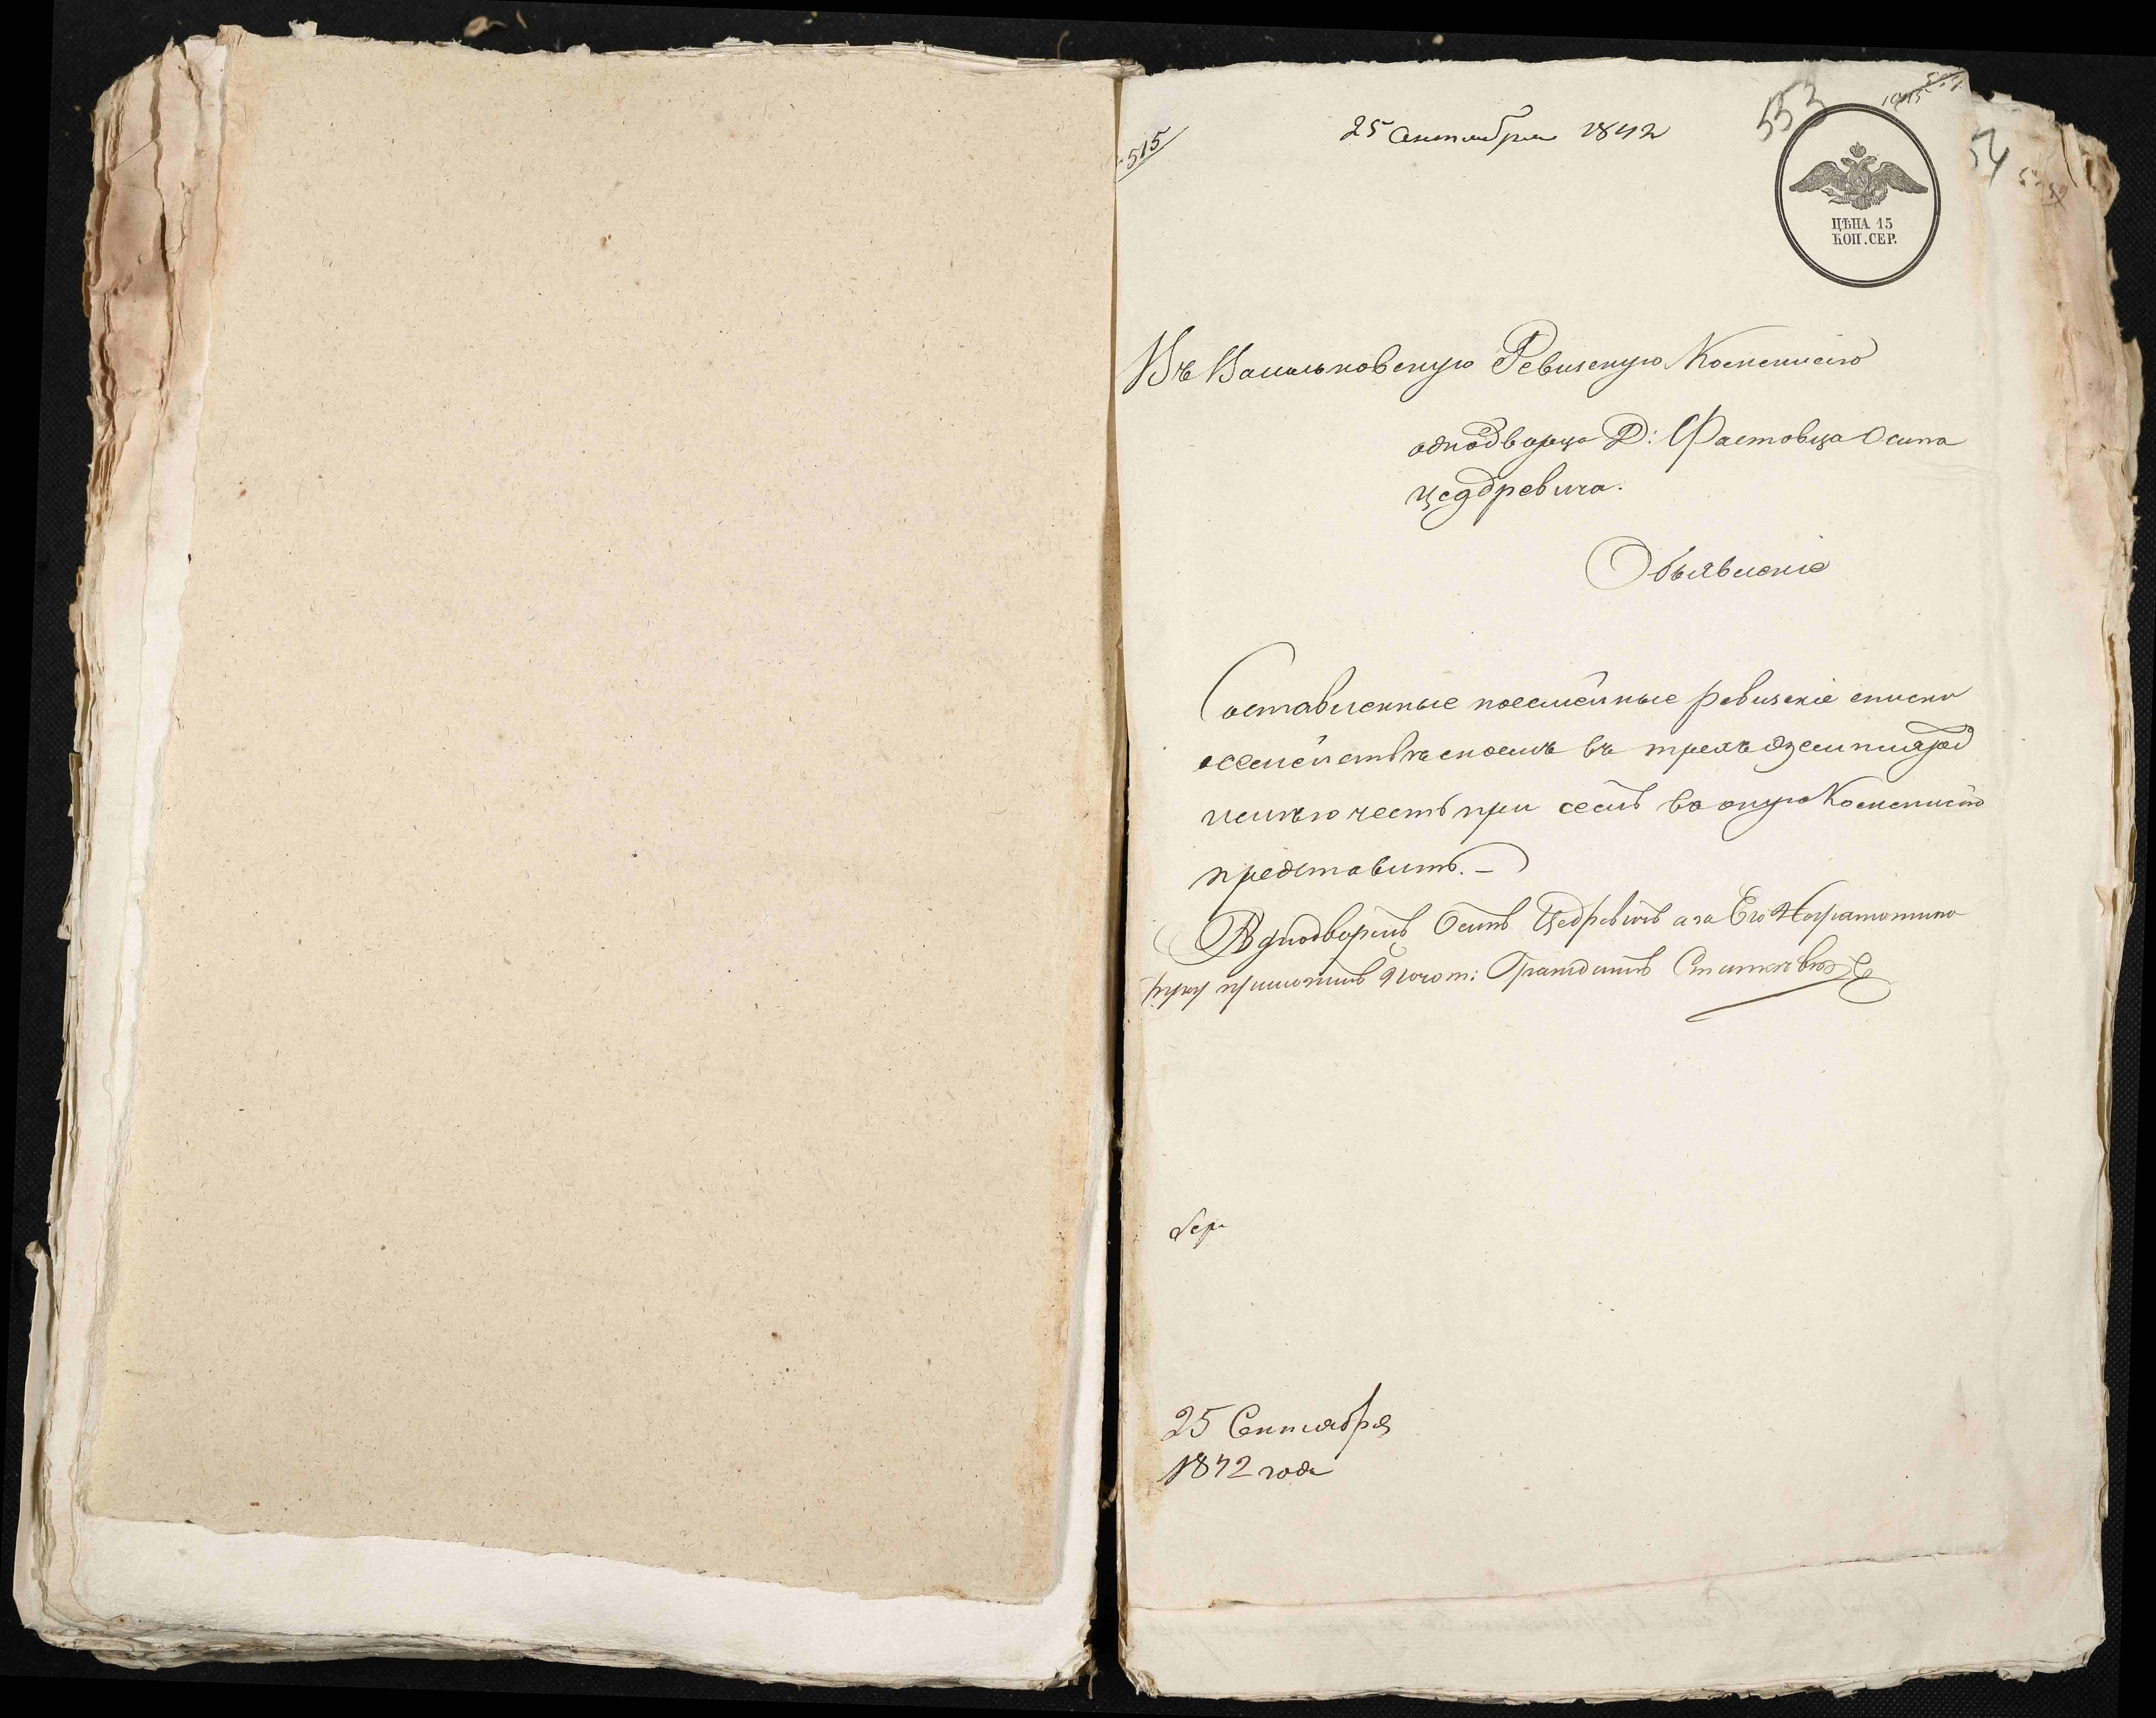 515
25 Сентября 1842
553
54
ЦѢНА 15
КОП. СЕР.
Въ Васильковскую Ревизскую Коммисію
однодворца Д: Фастовца Осипа
Цедревича.
Объявленіе
Составленные посемейные ревизскіе списки
о семействѣ моемъ въ трехъ экземплярах
имѣю честь при семъ въ оную Коммисію
представить. —
Однодворецъ Осипъ Цедревичъ а за Его Неграмотного
руку приложилъ Почот: Гражданинъ
25 Сентября
1842 года